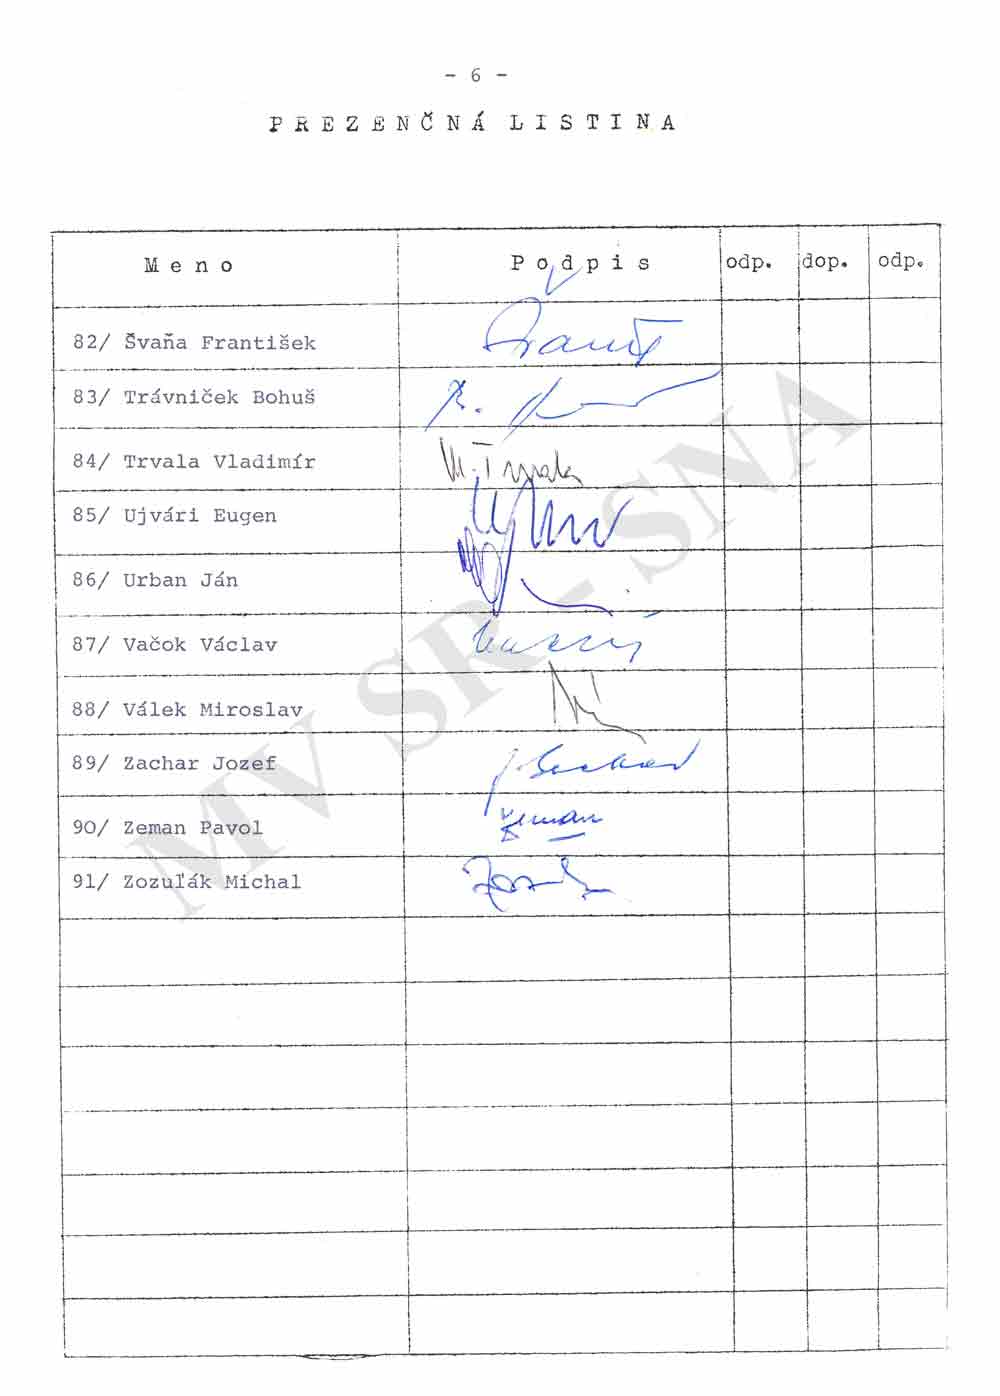 - 6 -
PREZENČNÁ LISTINA
Meno Podpis odp. dop. odp.
82/ Švaňa František
83/ Trávniček Bohuš
84/ Trvala Vladimír
85/ Ujvári Eugen
86/ Urban Ján
87/ Vačok Václav
88/ Válek Miroslav
89/ Zachar Jozef
90/ Zeman Pavol Zeman
91/ Zozuľák Michal
MV SR - SNA